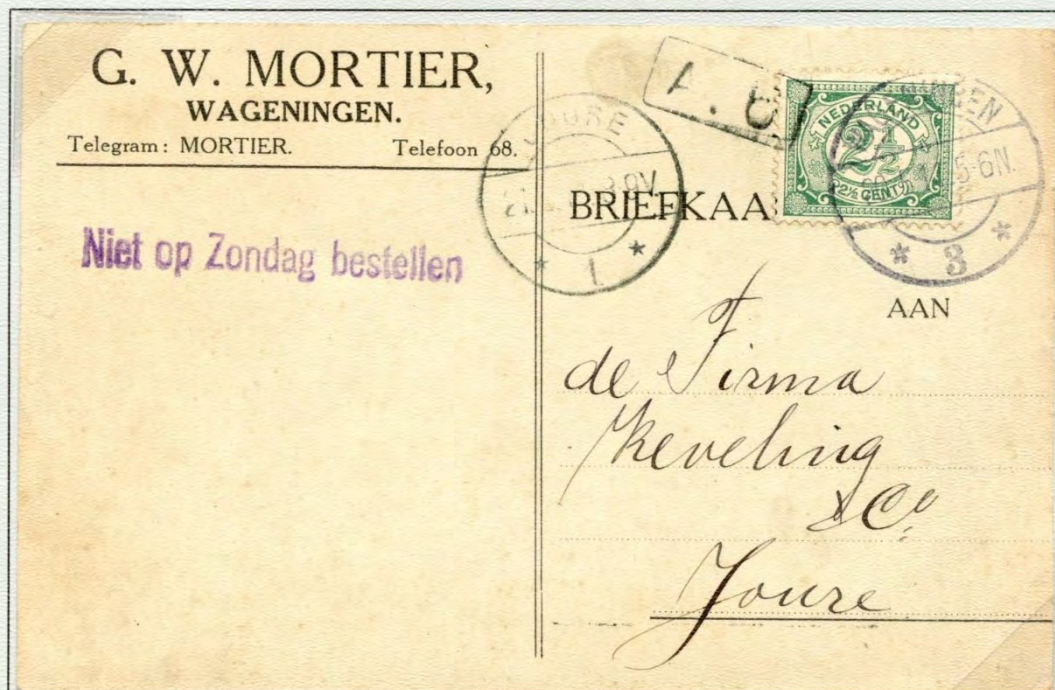 G. W. MORTIER,
WAGENINGEN.
Telegram: MORTIER. Telefoon 68.
Niet op Zondag bestellen
JOURE.
1
NEDERLAND
2½
2½ CENT 2½
5-6N.
3
BRIEFKAA
AAN
de Firma
Keveling
& Co
Joure